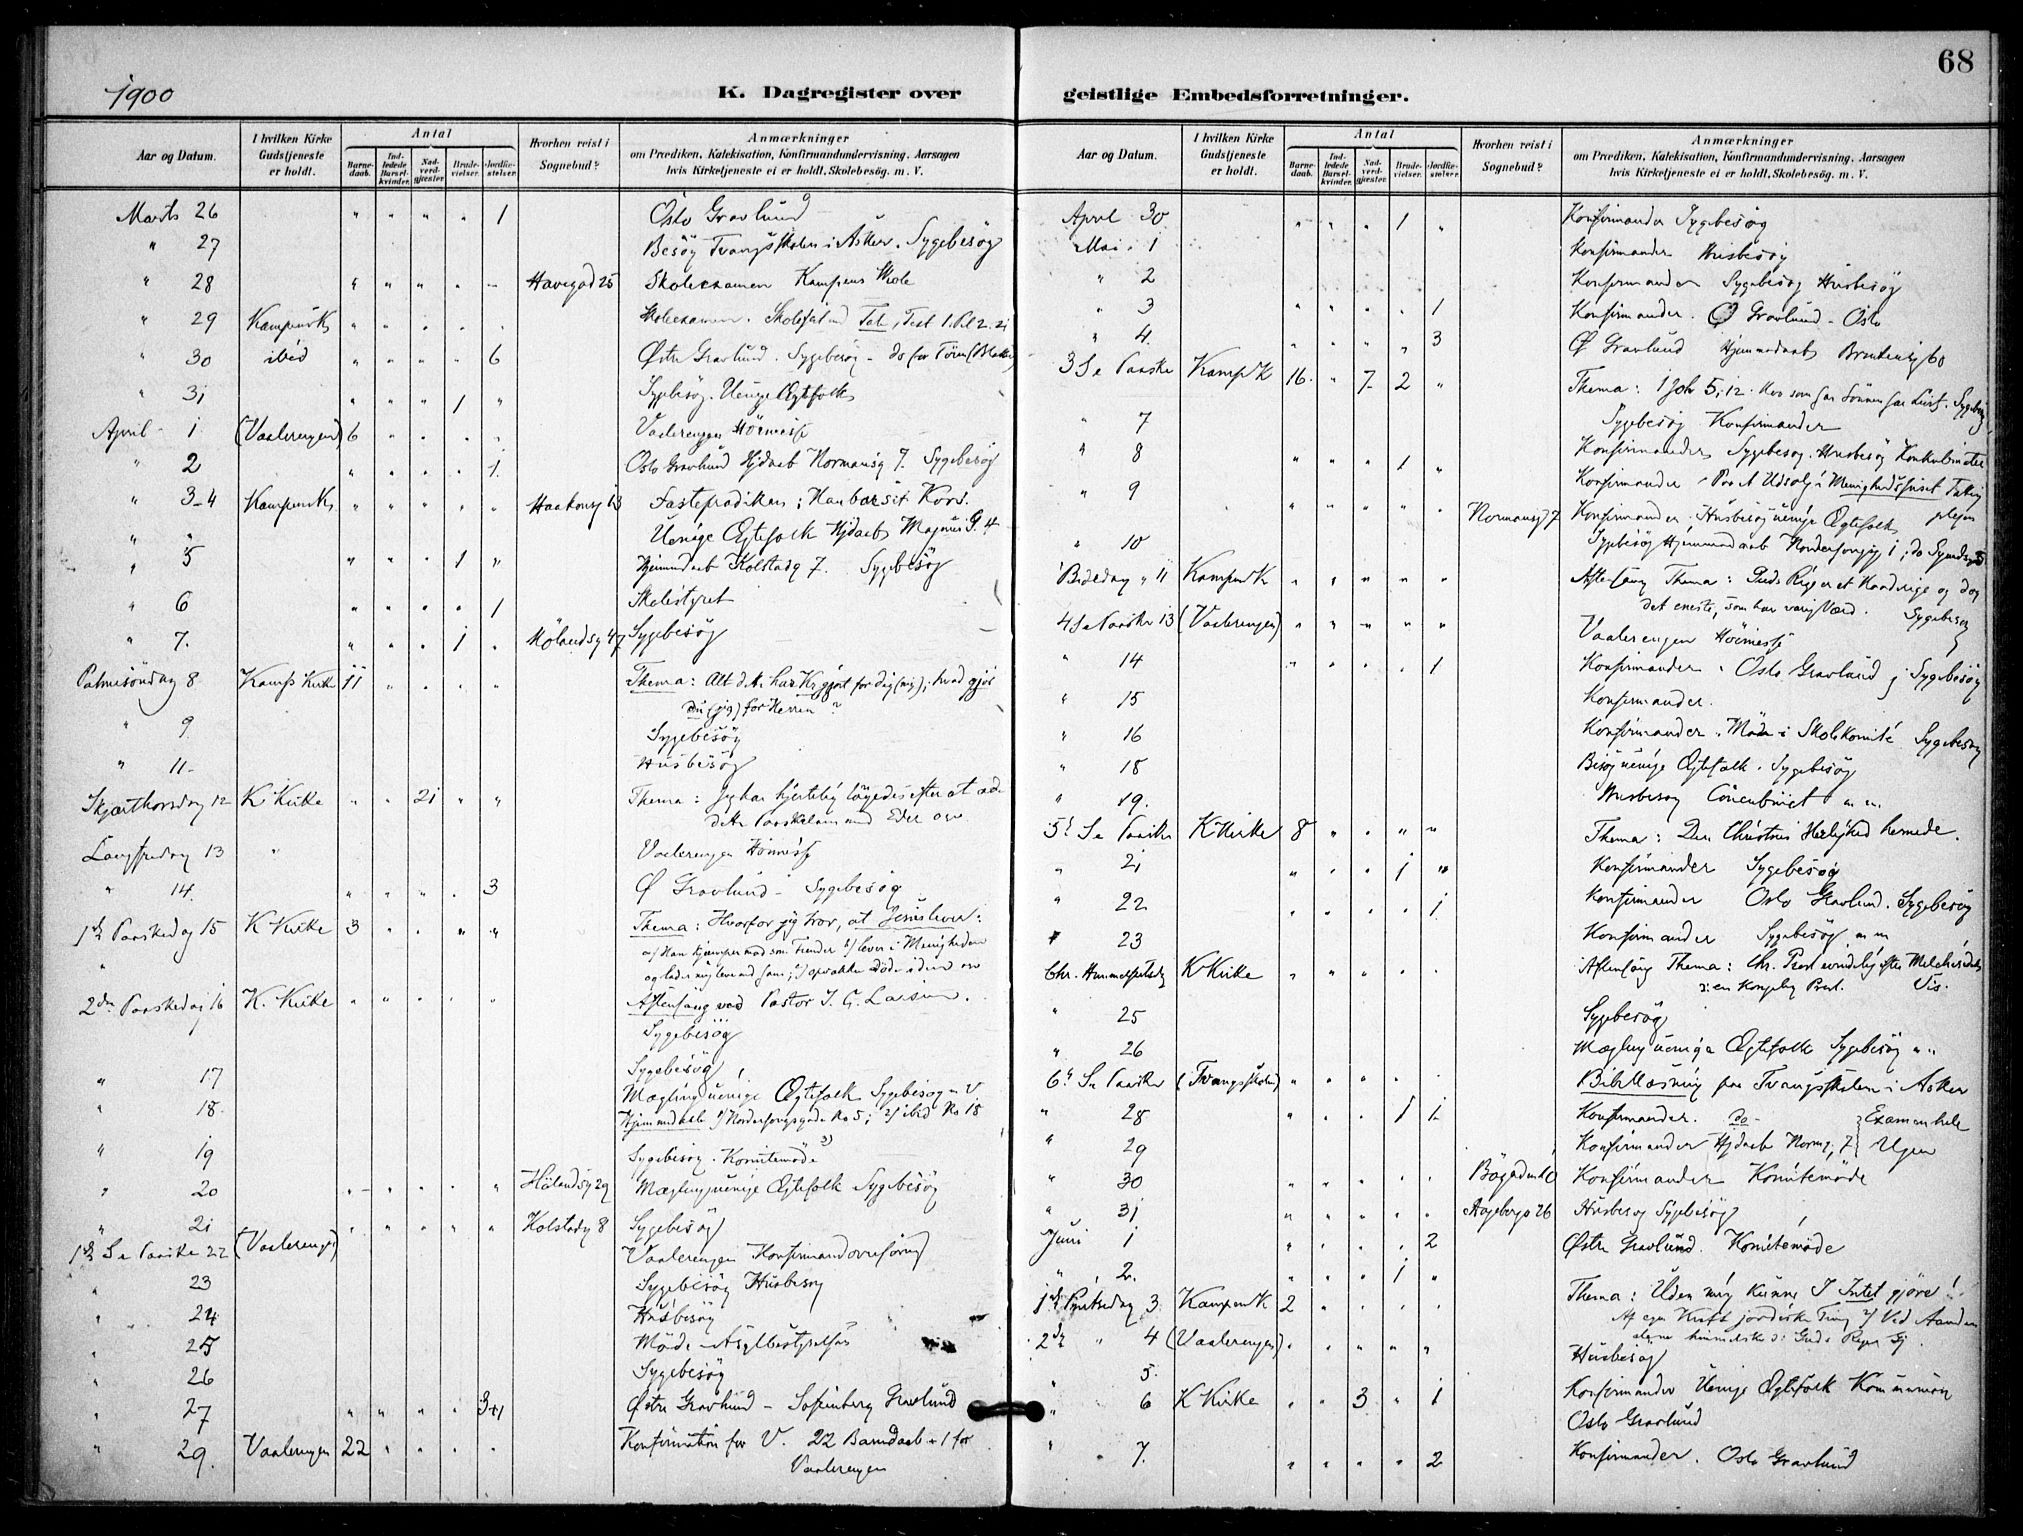 1900
68
K. Dagregister over geistlige Embedsforretninger.
Aar og Datum.
I hvilken Kirke Gudstjeneste er holdt.
Antal
Barnedaab.
Indledede Barselkvinder.
Nadverdgjæster.
Brudevielser.
Jordfæstelser.
Hvorhen reist i Sognebud?
Anmærkninger
om Prædiken, Katekisation, Konfirmandundervisning, Aarsagen
hvis Kirketjeneste ei er holdt, Skolebesøg. m. V.
Marts 26 " " " " 1 Oslo Gravlund
" 27 Besög Tvangsskolen i Asker. Sygebesög
" 28 " " " " - Havegad 25 Skoleexamen Kampens Skole
" 29 Kampens K " " " " " Skoleexamen.
" 30 ibid " " " " 6 Østre Gravlund. Sygebesög
" 31 " " " 1 " Sygebesög. Uenige Ægtefolk
April 1 (Vaalerengen) 6 " " " " Vaalerengen Höimesse
" 2 " " " " 1. Oslo Gravlund Hjdaab Normansg 7. Sygebesög
" 3-4 Kampens K " " " " " Haakonsg 13 Fasteprædiken: Han bar sit Kors.
" " Uenige Ægtefolk Hjdaab Magnus G. 4
" 5 " " " 1 " Hjemmedaab Kolstadg 7. Sygebesög
" 6 " " " " 1 Skolestyret
" 7. " " " 1 " Hölandsg 47 Sygebesög
Palmesöndag 8 Kamps Kirke 11 " " " " Thema: Alt dette har Kr gjort for dig (mig); hvad gjör
Du (jeg) for Herren?
" 9 Sygebesög
" 11- Husbesög
Skjærthorsdag 12 K Kirke " " 21 " " Thema: Jeg har hjertelig længedes efter at æde
dette Paaskelam med Eder osv
Langfredag 13 " Vaalerengen Höimesse
" 14. " " " " 3 Ø Gravlund - Sygebesög
1ste Paaskedag 15 K Kirke 3 " " " " Thema: Hvorfor jeg tror, at Jesus lever:
2den Paaskedag 16 K. Kirke " " " " " Aftensang ved Pastor J. G. Larsen.
Sygebesög
Sygebesög
" 17 Mægling uenige Ægtefolk Sygebesög
" 18. Hjemmedaab 1) Nordenfongsgade No 5; 2) ibid No 18
" 19 Sygebesög. Komitemöde
" 20 " " " " " Hölandsg 29 Mægling uenige Ægtefolk Sygebesög
" 21 " " " " " Kolstadg 8 Sygebesög
1ste S e Paaske 22 (Vaalerengen) Vaalerengen Konfirmandoverhøring
" 23 Sygebesög Husbesög
" 24 Husbesög
" 25 Möde - Asylbestyrelsen
" 26 Sygebesög
" 27 " " " " 3+1 Østre Gravlund - Sofienberg Gravlund
" 29. Vaalerengen 22 " " " " Konfirmation for V. 22 Barnedaab + 1 for
Vaalerengen
Aar og Datum.
I hvilken Kirke Gudstjeneste er holdt.
Antal
Barnedaab.
Indledede Barselkvinder.
Nadverdgjæster.
Brudevielser.
Jordfæstelser.
Hvorhen reist i Sognebud?
Anmærkninger
om Prædiken, Katekisation, Konfirmandundervisning, Aarsagen
hvis Kirketjeneste ei er holdt, Skolebesøg. m. V.
April 30 " " " 1 " Konfirmander Sygebesög
Mai 1 Konfirmander Husbesög
" 2 Konfirmander Sygebesög Husbesög
" 3 " " " " 1 Konfirmander. Ø Gravlund - Oslo
" 4. " " " " 3 Ø Gravlund Hjemmedaab 60
3 S e Paaske Kamp K 16. " 7 2 " Thema: 1 Joh 5,12. Hvo som har Sönnen har Livet. Sygebesög
" 7 Sygebesög Konfirmander
" 8 " " " 1 " Konfirmander Sygebesög. Husbesög
" 9 " " " " " Normansg 7 Konfirmander. Husbesög uenige Ægtefolk
" 10 Sygebesög Hjemmedaab
Bededag " 11 Kampens K " " " " " Aftensang Thema: Guds Rige er et Kaarsrige og dog
det eneste, som har varig Værd. Sygebesög
4 S e Paaske 13 (Vaalerengen) " " " " " Vaalerengen Höimesse
" 14 " " " " 1 Konfirmander. Oslo Gravlund Sygebesög
" 15 Konfirmander.
" 16 Konfirmander. Möde i Skolekomité Sygebesög
" 18 Besög uenige Ægtefolk. Sygebesög
" 19. Husbesög
5t S e Paaske K Kirke 8 " " " " Thema: Den Christnes Herlighed hernede.
" 21 " " " 1 " Konfirmander Sygebesög
" 22 " " " " 1 Konfirmander Oslo Gravlund. Sygebesög
" 23 Konfirmander Sygebesög
Chr. Himmelfartsdg K Kirke " " " " " Aftensang Thema: Chr. Præst evindelig efter Melchisedeks
ɔ: en Kongelig Præst. Vis.
" 25 Sygebesög
" 26 Mægling uenige Ægtefolk Sygebesög
6t S e Paaske (Tvangsskolen) " " " " " Bibellæsning paa Tvangsskolen i Asker
" 28 " " " 1 1 Konfirmander. do - Examen hele
" 29 Konfirmander Hjdaab Normg. 7 Ugen
" 30 " " " " " Konfirmander Komitemöde
" 31 " " " " " 26 Husbesög Sygebesög
Juni 1 " " " " 2 Østre Gravlund. Komitemöde
" 2. " " " 1 "
1ste Pintsedag 3. Kampens K 2 " " " " Thema: Uden mig kunne I Intet gjöre!
2den " 4 (Vaalerengen) " " " " "
" 5. Husbesög
" 6 K Kirke " " 3 " 1 Konfirmander Uenige Ægtefolk Kommunion
Oslo Gravlund
" 7. " " " " 2 Konfirmander. Oslo Gravlund